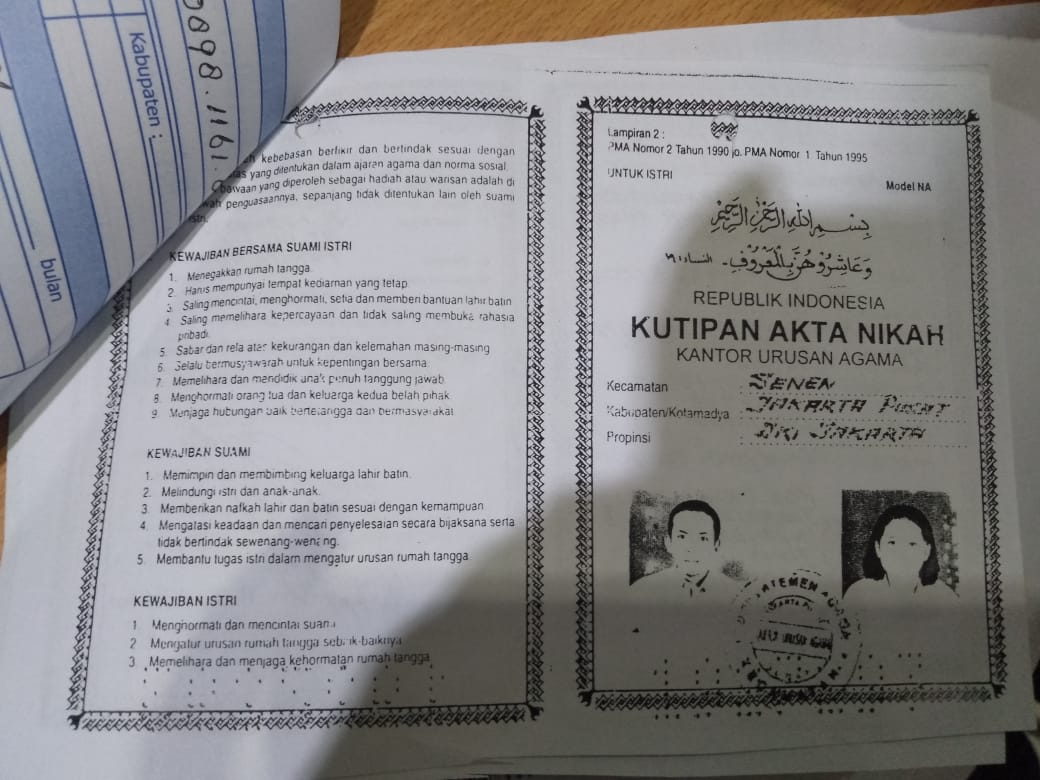 0898.1161
Kabupaten :
bulan
kebebasan berfikir dan bertindak sesuai dengan
yang ditentukan dalam ajaran agama dan norma sosial.
bawaan yang diperoleh sebagai hadiah atau warisan adalah di
penguasaannya, sepanjang tidak ditentukan lain oleh suami
istri.
KEWAJIBAN BERSAMA SUAMI ISTRI
1. Menegakkan rumah tangga.
2. Harus mempunyai tempat kediaman yang tetap.
3. Saling mencintai, menghormati, setia dan memberi bantuan lahir batin
4. Saling memelihara kepercayaan dan tidak saling membuka rahasia
pribadi.
5. Sabar dan rela atas kekurangan dan kelemahan masing-masing
6. Selalu bermusyawarah untuk kepentingan bersama.
7. Memelihara dan mendidik anak penuh tanggung jawab.
8. Menghormati orang tua dan keluarga kedua belah pihak.
9. Menjaga hubungan baik bertetangga dan bermasyarakat
KEWAJIBAN SUAMI
1. Memimpin dan membimbing keluarga lahir batin.
2. Melindungi istri dan anak-anak.
3. Memberikan nafkah lahir dan batin sesuai dengan kemampuan
4. Mengatasi keadaan dan mencari penyelesaian secara bijaksana serta
tidak bertindak sewenang-wenang.
5. Membantu tugas istri dalam mengatur urusan rumah tangga.
KEWAJIBAN ISTRI
1 Menghormati dan mencintai suami
2 Mengatur urusan rumah tangga sebaik-baiknya.
3 Memelihara dan menjaga kehormatan rumah tangga
Lampiran 2 :
PMA Nomor 2 Tahun 1990 jo. PMA Nomor 1 Tahun 1995
UNTUK ISTRI
Model NA
بِسْمِ اللهِ الرَّحْمٰنِ الرَّحِيْمِ
وَعَاشِرُوْهُنَّ بِالْمَعْرُوْفِ - النساء ١٩
REPUBLIK INDONESIA
KUTIPAN AKTA NIKAH
KANTOR URUSAN AGAMA
Kecamatan : SENEN
Kabupaten/Kotamadya : JAKARTA PUSAT
Propinsi : DKI JAKARTA
URUSAN AGAMA